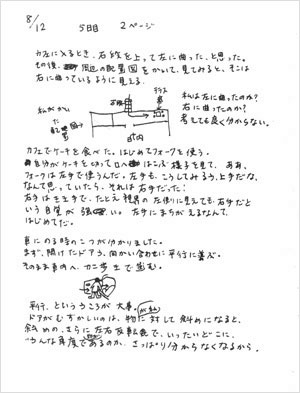 8/12 5日目 2ページ
カフェに入るとき、石段を上って左に曲った、と思った。
その後、周辺の配置図をかいて、見てみると、そこは
右に曲っているように見える。
私がかい
た配置図
石段
テラス
席
店内
私は左に曲ったのか?
右に曲ったのか?
考えても良く分からない。
カフェでケーキを食べた。はじめてフォークを使う。
自分がケーキを切って口へはこぶ様子を見て、ああ、
フォークは左手で使うんだ。左手も、こうしてみるう上手だな、
なんて思っていたら、それは右手だった!
右手は主手で、たとえ視界の左側に見えても右手だと
いう自覚が強い。左手にまちがえるなんて、
はじめてだ。
車にのる時のこつが分かりました。
まず、開けたドアに、向かい合わせに平行に並ぶ。
そのまま車内へ、カニ歩きで進む。
平行、というところが大事。
ドアがむずかしいのは、物が私に対して斜めになると、
斜めの、さらに左右反転発で、いったいどこに、
どんな角度であるのか、さっぱり分からなくなるから。